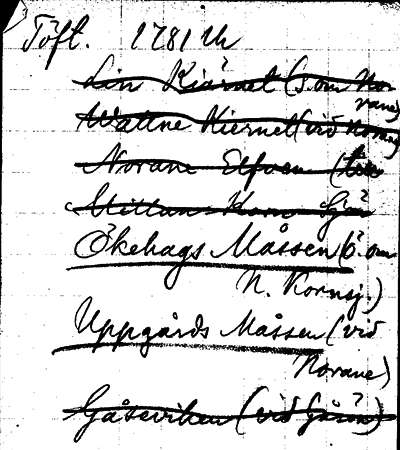 Töft. 1781 Uh
Lin Kiärnet (s.om Nor
vane)
Wattne Kiernet (vid Norane)
Norane Elfven (
Mittan Korn Sjö
Ökehags Måssen (ö. om
N. Kornsj.)
Uppgårds Måssen (vid
Norane)
Gåseviken (vid Gåsön)